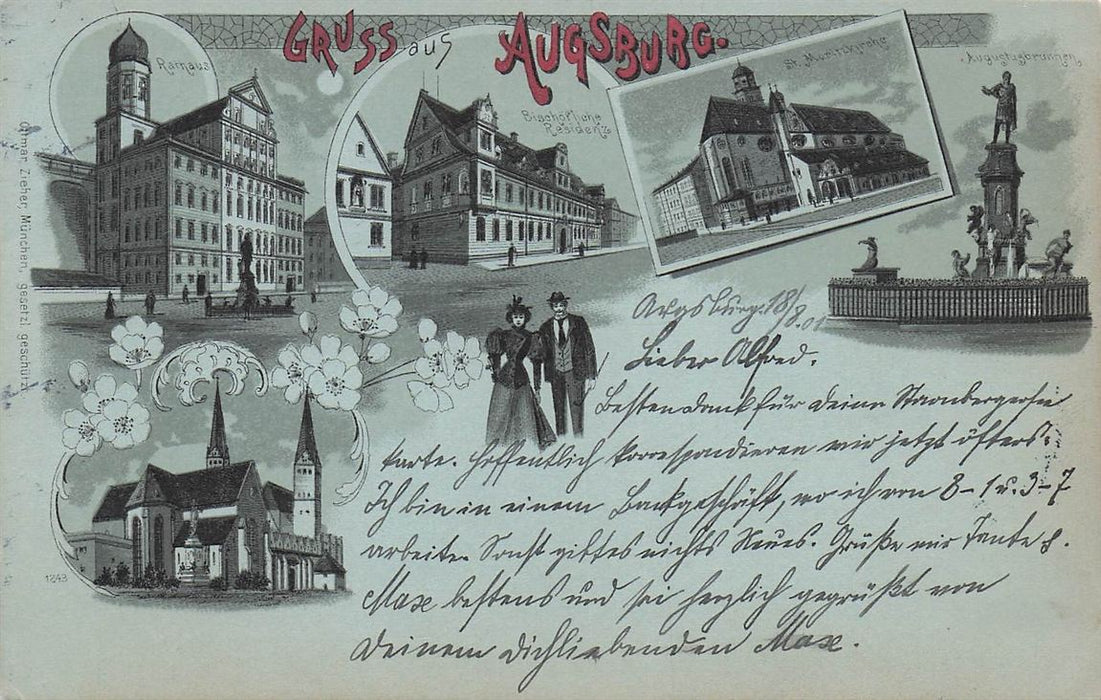 GRUSS aus AUGSBURG.
Rathaus
Bischöfliche
Residenz
St. Moritzkirche
Augustusbrunnen
Ottmar Zieher, München, gesetzl. geschützt
1243
Augsburg 18/8.01
Lieber Alfred.
Besten Dank für Deine Starnbergersee
karte. Hoffentlich korrespondieren wir jetzt öfters.
Ich bin in einem Bankgeschäft, wo ich von 8-1 u. 3-7
arbeite. Sonst gibt es nichts Neues. Grüße mir Tante &.
Max bestens und sei herzlich gegrüßt von
Deinem Dichliebenden Max.